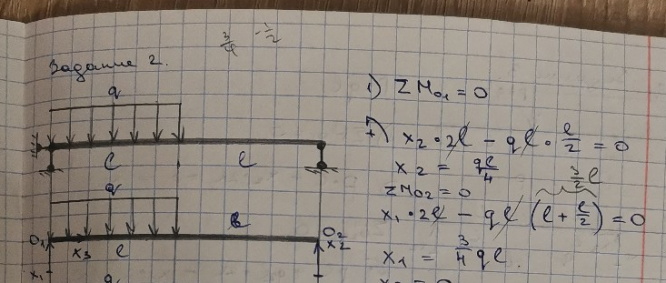 3/4 - 1/2
Задание 2.
q
l l
q
O₁ x₃ l O₂
x₂
x₁
1) ΣM₀₁ = 0
x₂ · 2l - ql · l/2 = 0
x₂ = ql/4
ΣM₀₂ = 0
3/2 l
x₁ · 2l - ql (l + l/2) = 0
x₁ = 3/4 ql